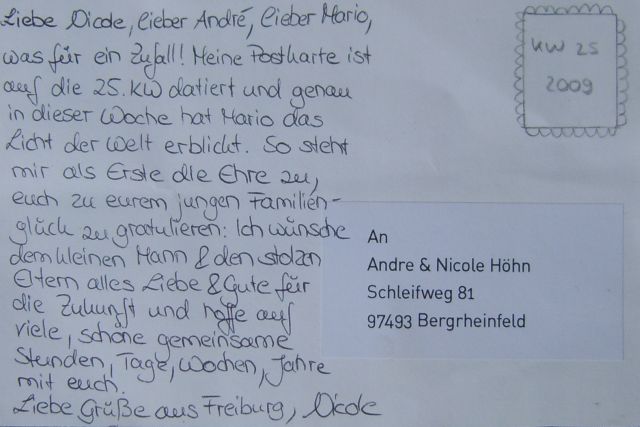 Liebe Nicole, lieber André, lieber Mario,
was für ein Zufall! Meine Postkarte ist
auf die 25. KW datiert und genau
in dieser Woche hat Mario das
Licht der Welt erblickt. So steht
mir als Erste die Ehre zu,
euch zu eurem jungen Familien-
glück zu gratulieren: Ich wünsche
dem kleinen Mann & den stolzen
Eltern alles Liebe & Gute für
die Zukunft und hoffe auf
viele, schöne gemeinsame
Stunden, Tage, Wochen, Jahre
mit euch.
Liebe Grüße aus Freiburg, Nicole
KW 25
2009
An
Andre & Nicole Höhn
Schleifweg 81
97493 Bergrheinfeld